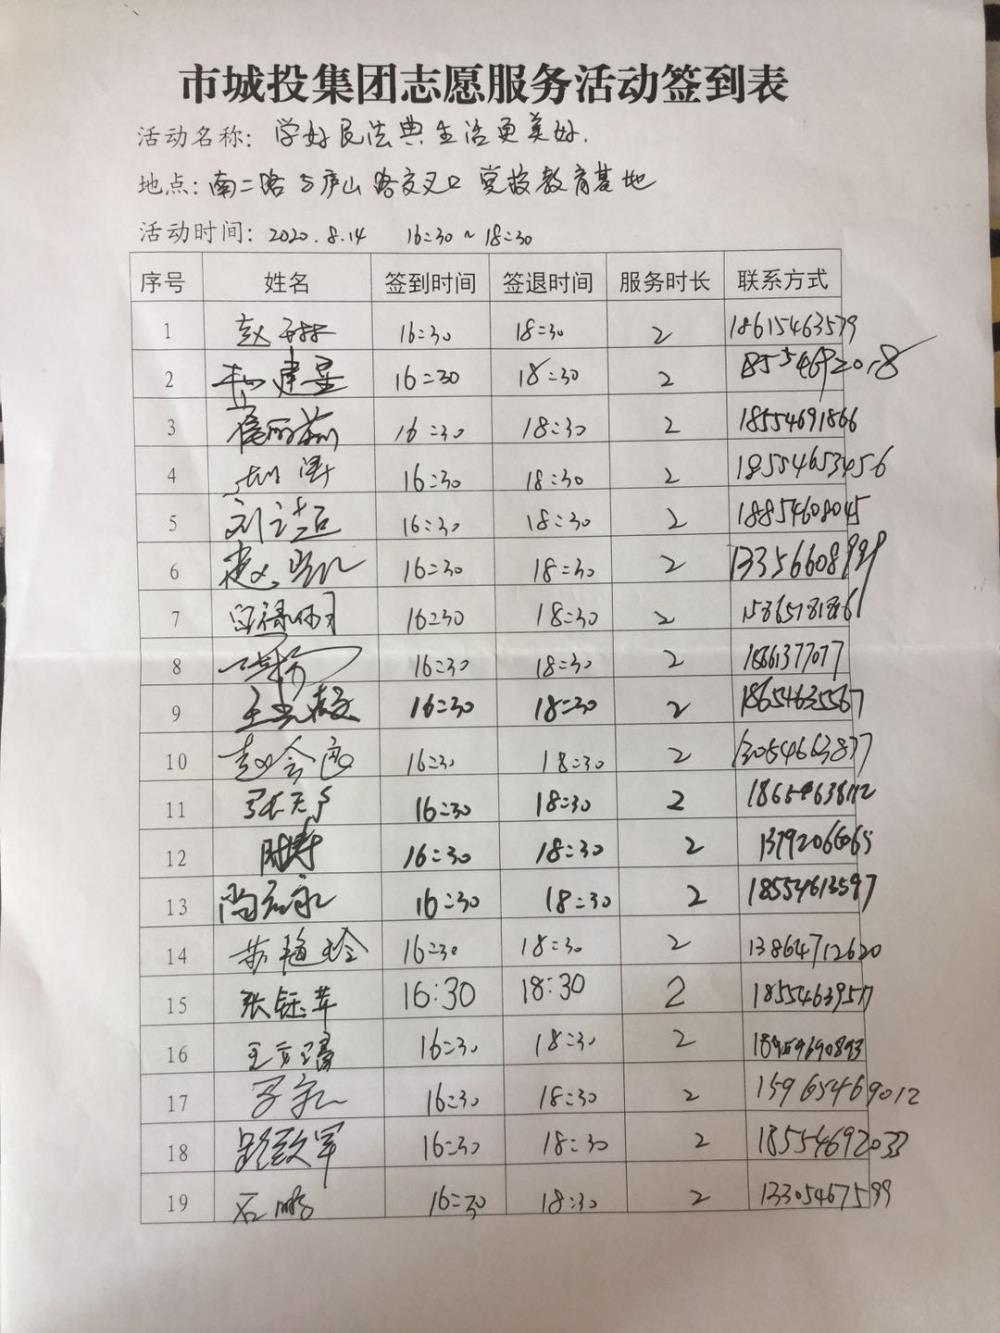 市城投集团志愿服务活动签到表
活动名称: 学好民法典 生活更美好.
地点: 南二路与庐山路交叉口 党校教育基地
活动时间: 2020.8.14 16:30~18:30
序号 姓名 签到时间 签退时间 服务时长 联系方式
1 赵 16:30 18:30 2 18615463579
2 建星 16:30 18:30 2 18554692018
3 16:30 18:30 2 18554691866
4 16:30 18:30 2 18554653456
5 刘 16:30 18:30 2 18854608045
6 赵 16:30 18:30 2
7 16:30 18:30 2
8 16:30 18:30 2
9 王 16:30 18:30 2 18654635567
10 赵会 16:30 18:30 2 13054663877
11 张天 16:30 18:30 2
12 16:30 18:30 2
13 尚 永 16:30 18:30 2 18554613597
14 苏艳玲 16:30 18:30 2 13864712620
15 张钰苹 16:30 18:30 2
16 王 16:30 18:30 2
17 16:30 18:30 2 15965469012
18 路致军 16:30 18:30 2 18554692033
19 石鹏 16:30 18:30 2 13305467599